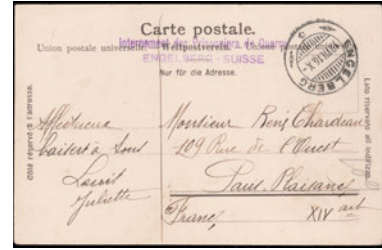 Carte postale.
Union postale universelle. Weltpostverein. Unione
Internement des Prisonniers de Guerre
ENGELBERG - SUISSE
Nur für die Adresse.
ENGELBERG
Côté réservé à l'adresse.
Lato riservato all' indirizzo.
Affectueux
baisers à tous
Louis
Juliette
Monsieur René Chardeau
109 Rue de l'Ouest
Paris Plaisance
France
XIV art